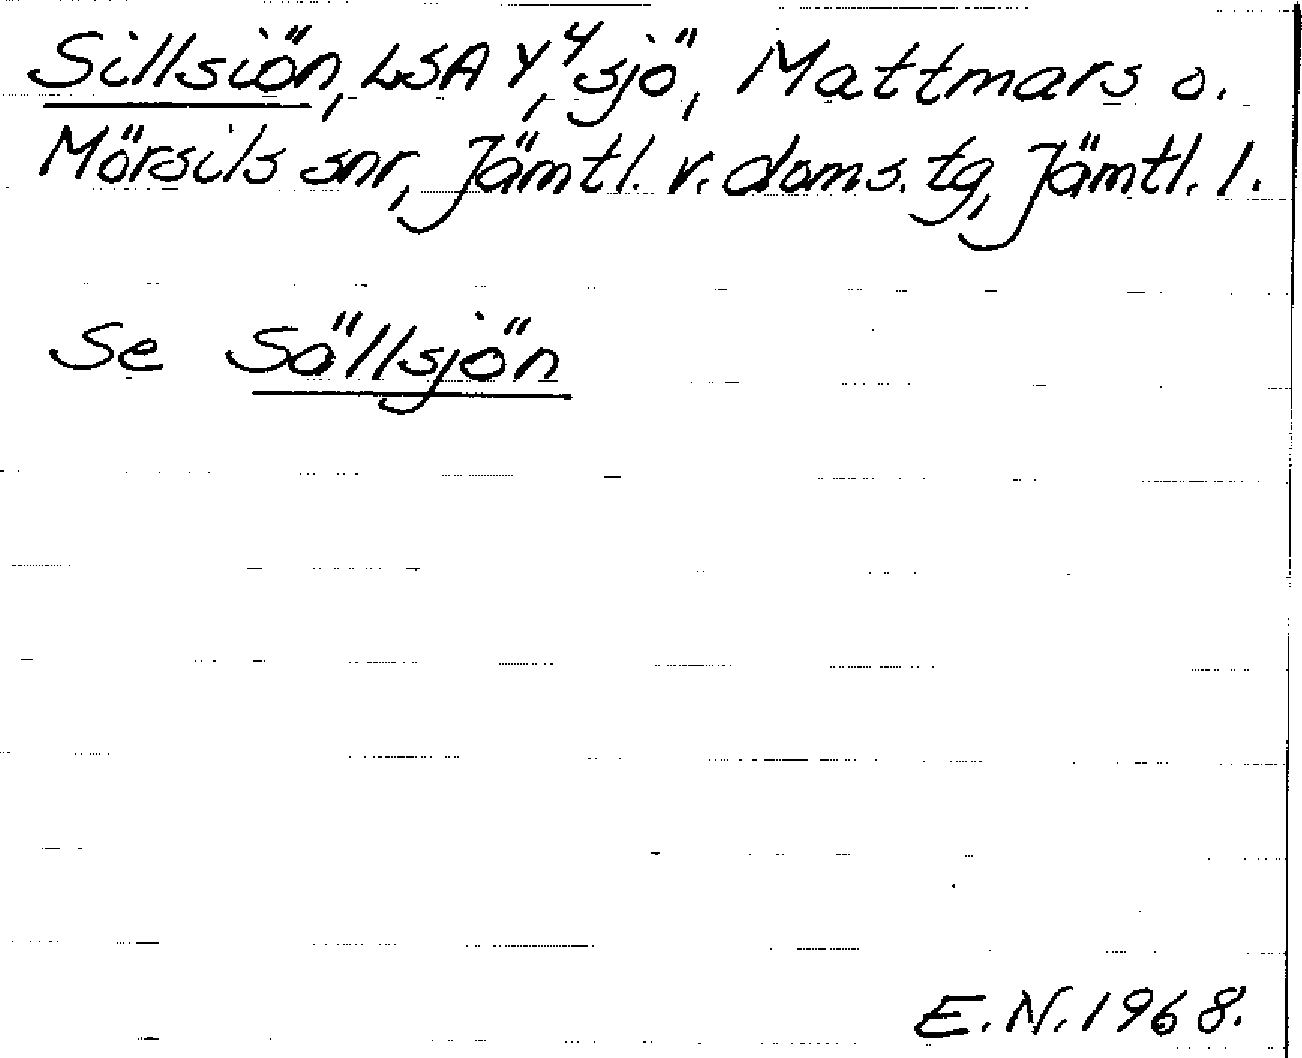 Sillsiön, LSA Y⁴, sjö, Mattmars o.
Mörsils snr, Jämtl. v. doms. tg, Jämtl. l.
Se Sällsjön
E.N. 1968.